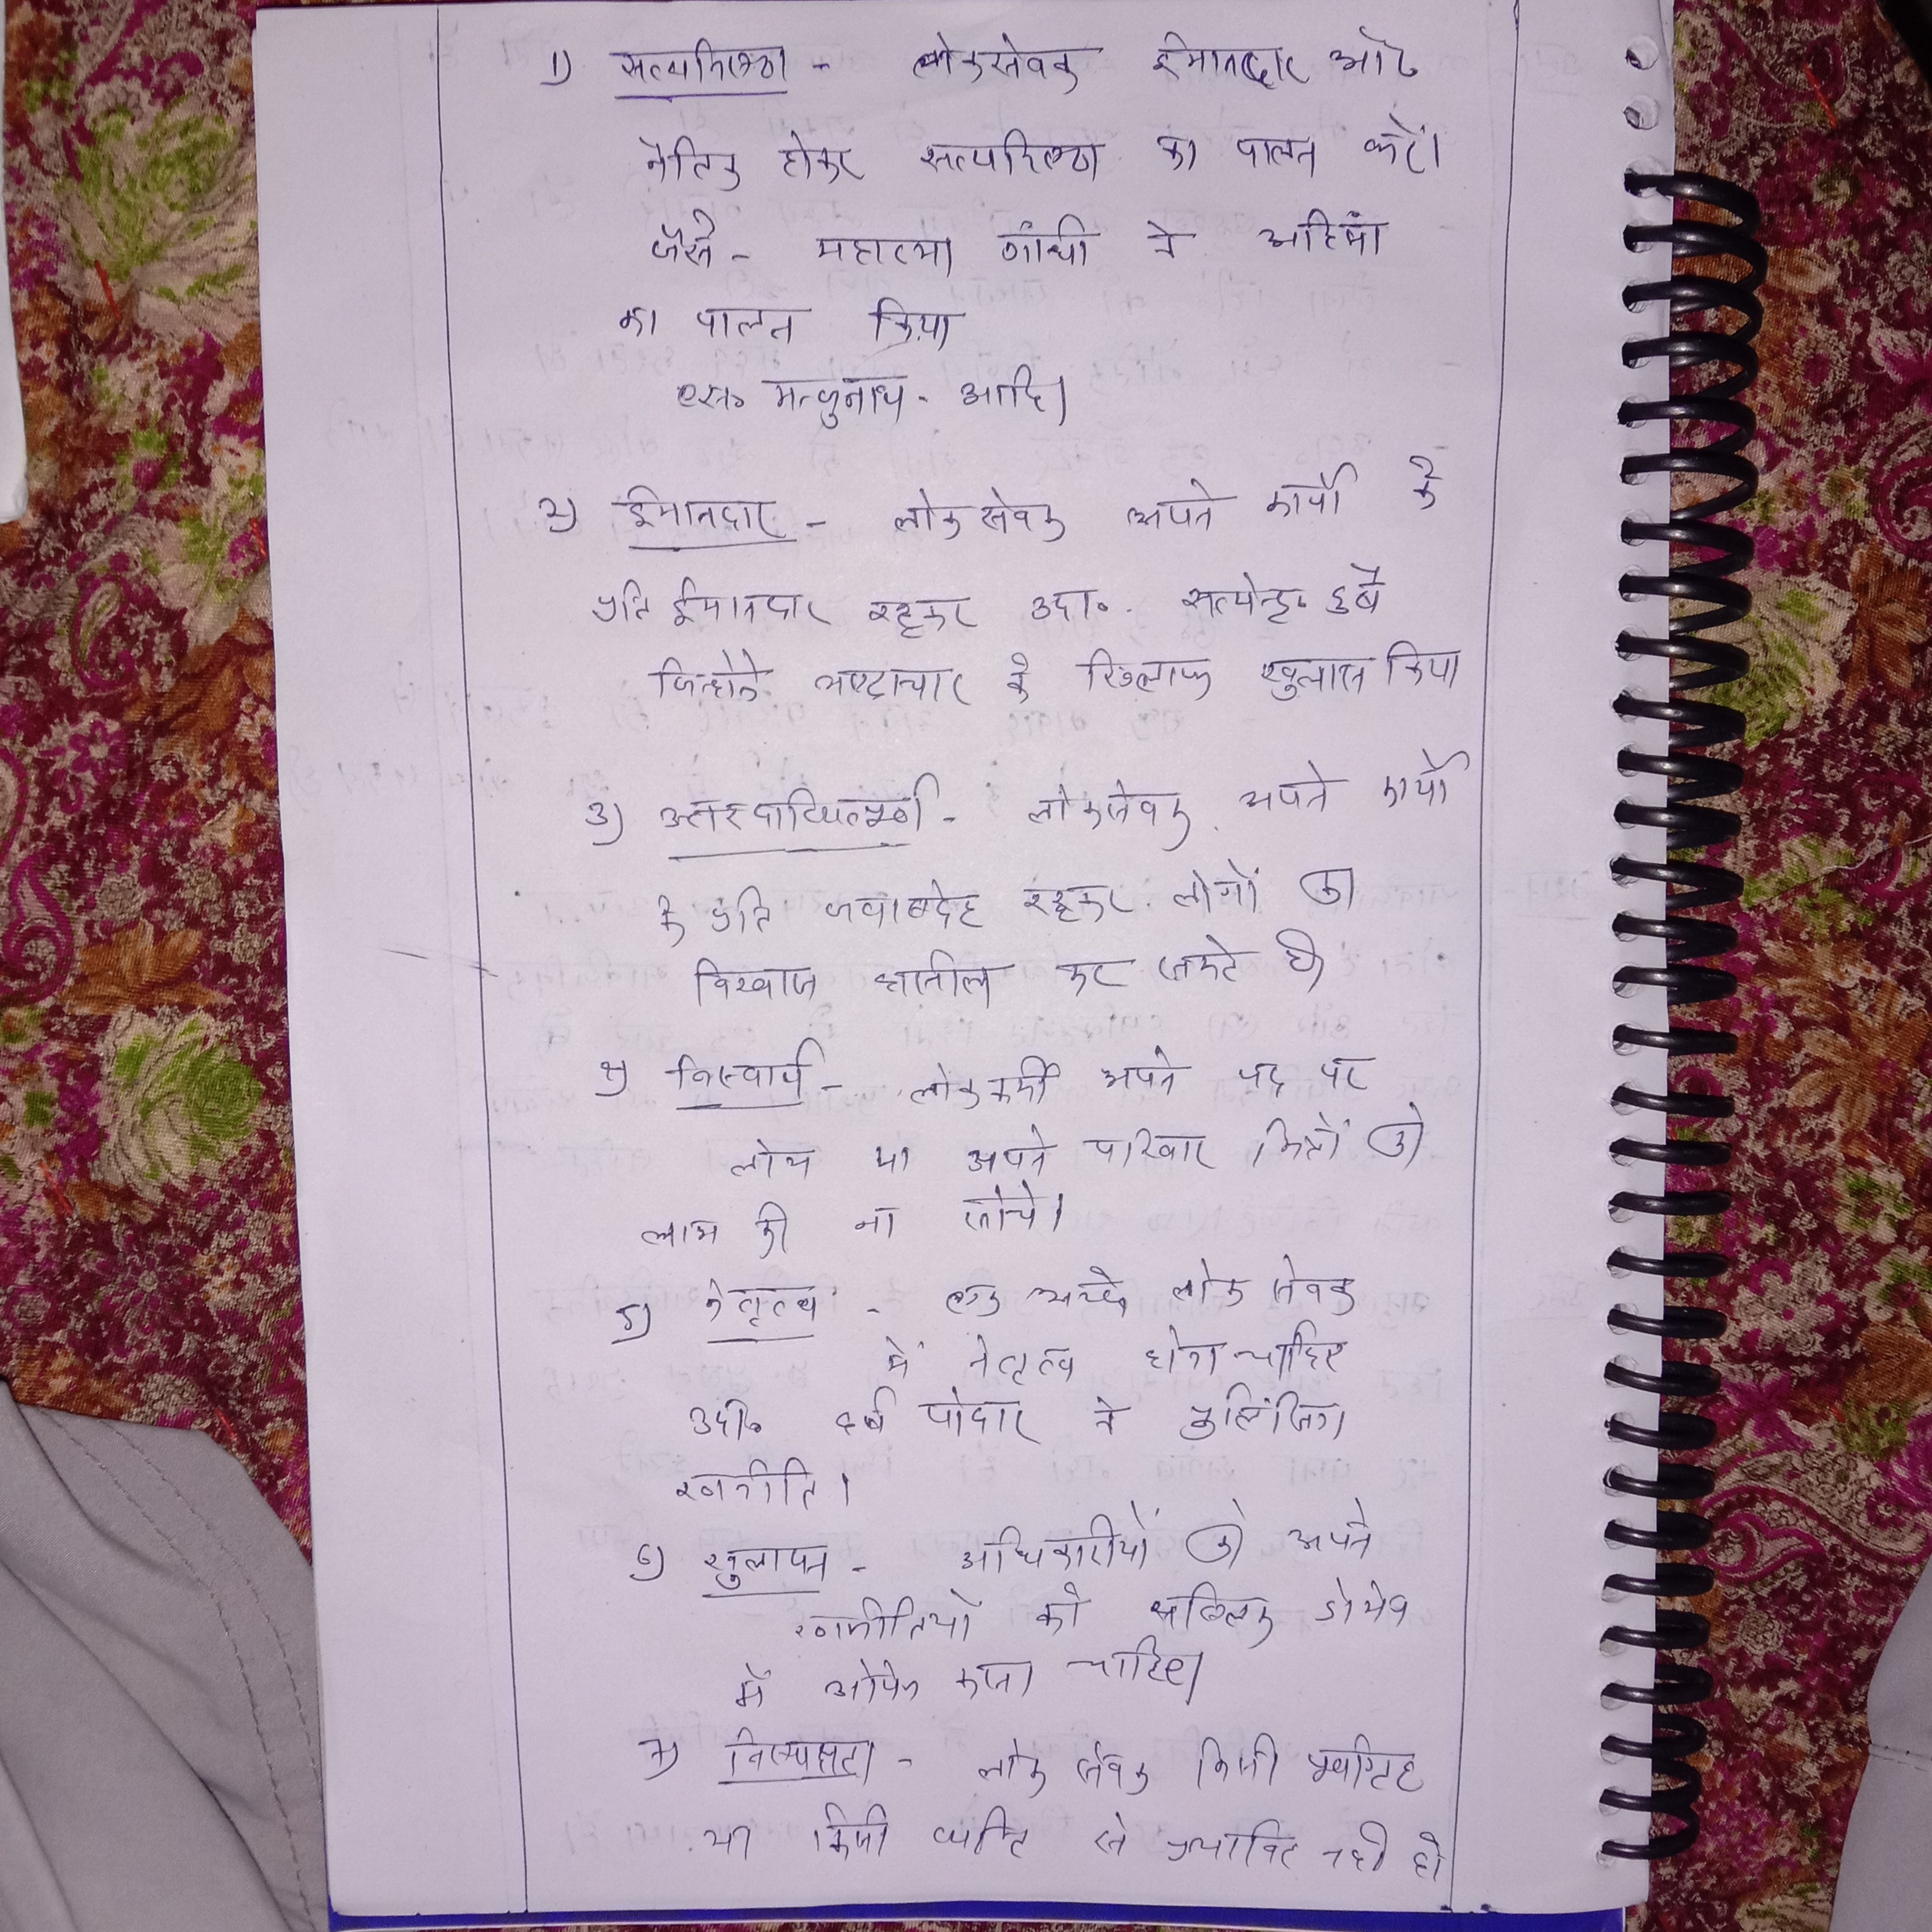 1) सत्यनिष्ठा - लोकसेवक ईमानदार और
नैतिक होकर सत्यनिष्ठा का पालन करें।
जैसे - महात्मा गांधी ने अहिंसा
का पालन किया
एस० मन्जुनाथ - आदि।
2) ईमानदार - लोक सेवक अपने कार्यो के
प्रति ईमानदार रहकर उदा०. सत्येन्द्र दुबे
जिन्होने भ्रष्टाचार के खिलाफ खुलासा किया
3) उत्तरदायित्व - लोकसेवक अपने कार्यो
के प्रति जवाबदेह रहकर लोगों का
विश्वास हासील कर सकते है।
4) निस्वार्थ - लोककर्मी अपने पद पर
लोभ या अपने परिवार मित्रों को
लाभ की ना सोचे।
5) नेतृत्व - एक अच्छे लोक सेवक
में नेतृत्व होना चाहिए
उदा० हर्ष पोदार ने
रणनीति।
6) खुलापन - अधिकारीयों को अपने
रणनीतियों को पब्लिक डोमेन
में ओपन करना चाहिए।
7) निष्पक्षता - लोक सेवक किसी
या किसी व्यक्ति से प्रभावित नही हो